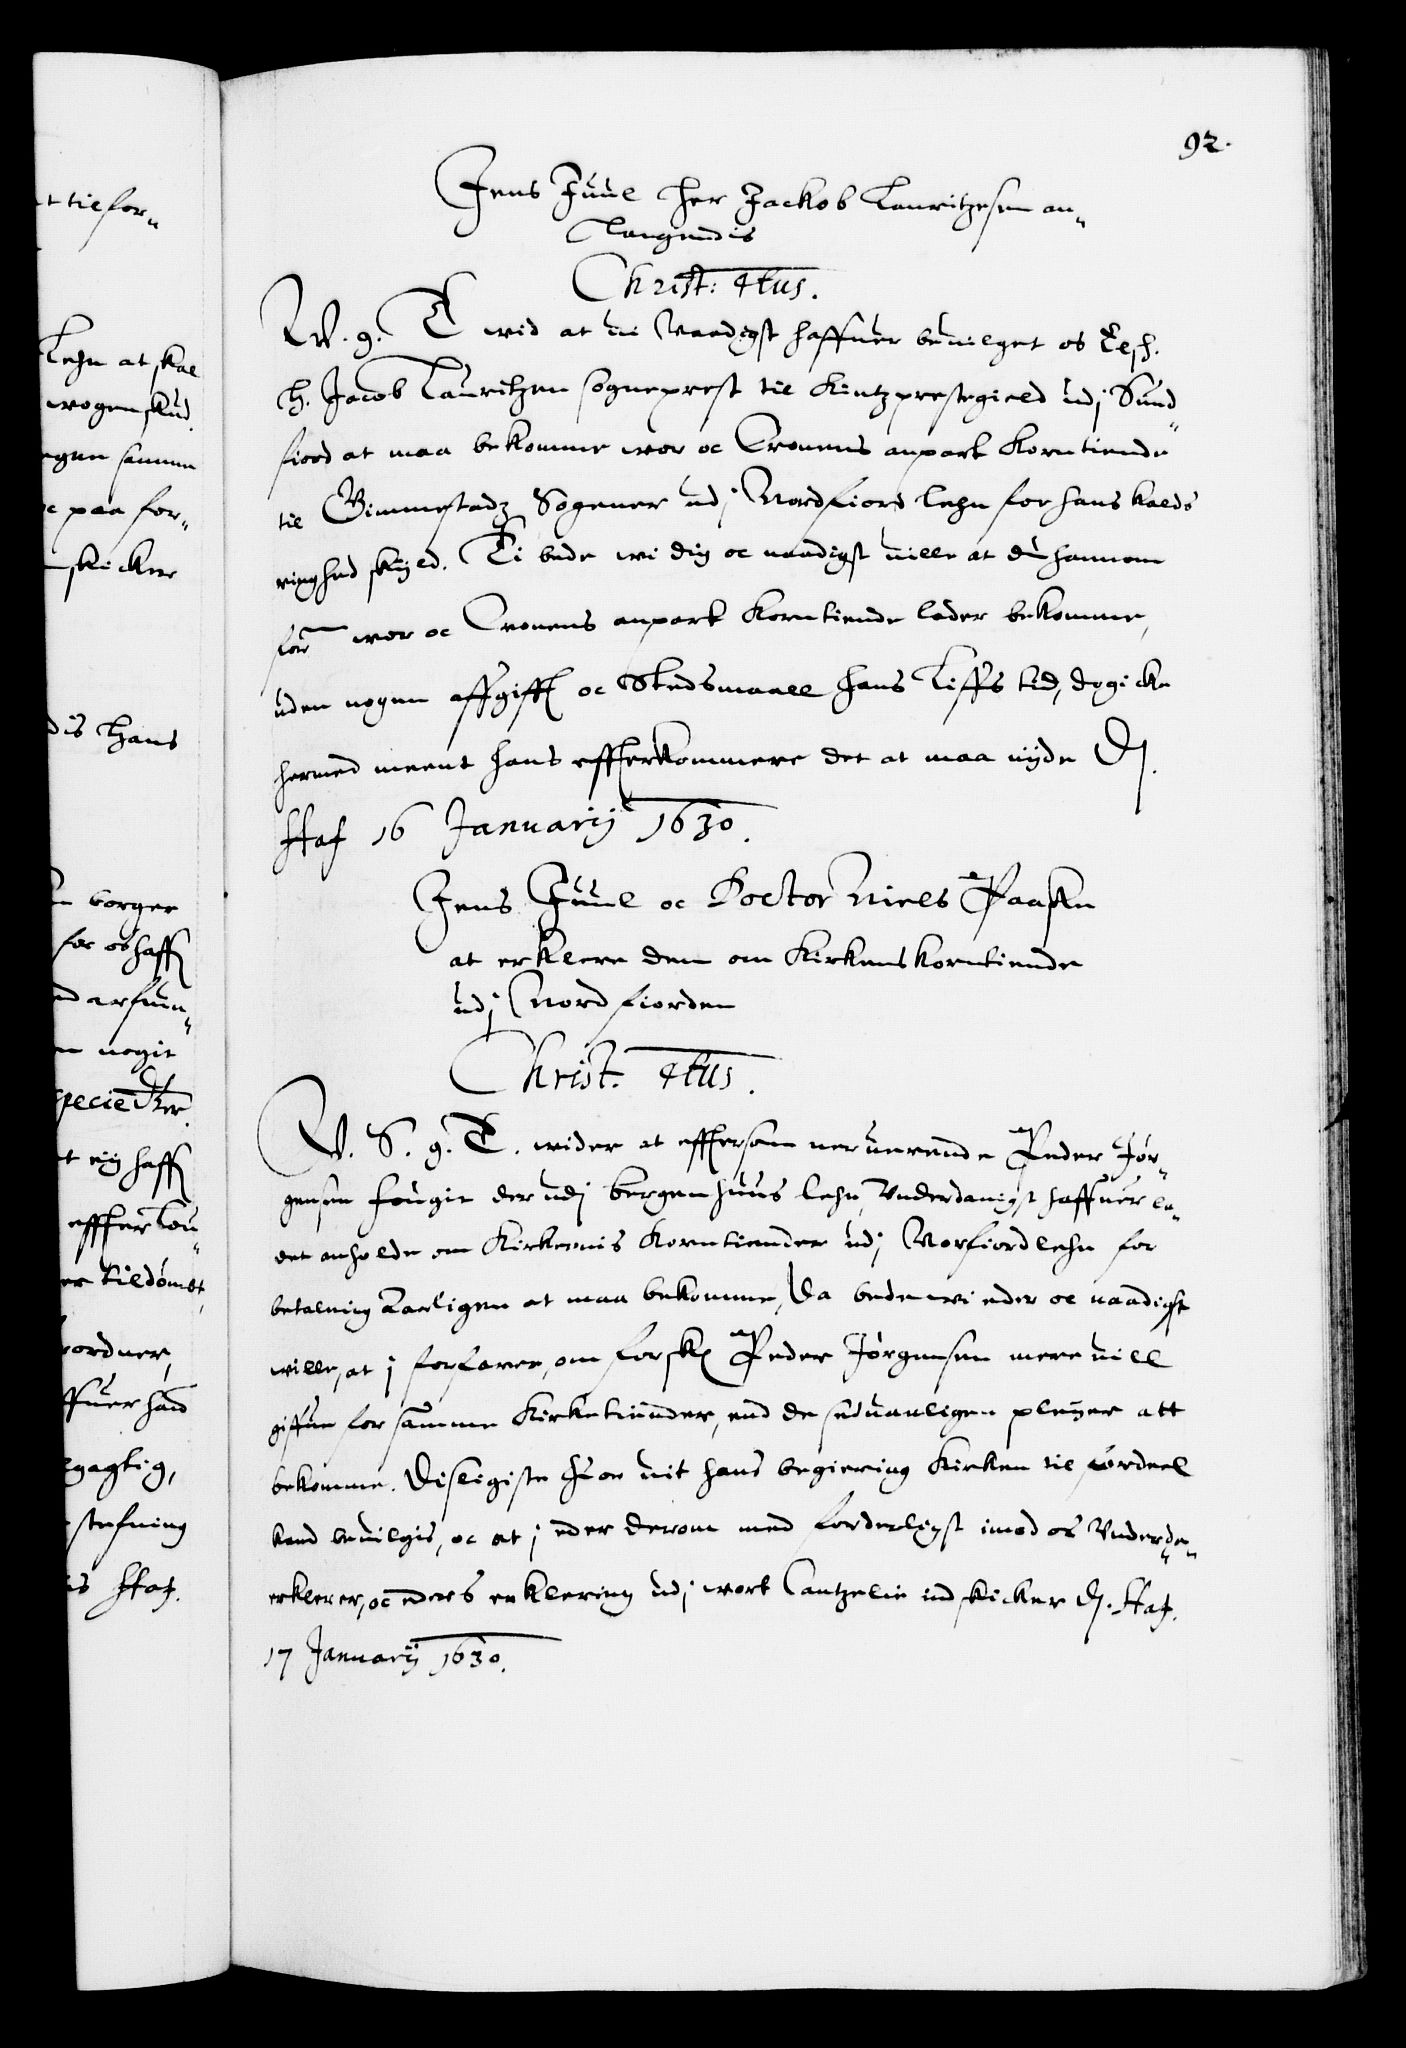 92.
Jens Juul her Jackob Lauritzesen an„
langendis
Christ: 4tus.
W. g. T wid at wi Naadigst haffuer beuilget os Elsk.
h. Jacob Lauritzen sogneprest til Kintz prestegield udj Sund„
fiord at maa bekomme wor oc Cronens anpart Korntiende
til Gimmestadz Sogener udj Nordfiord lehn for hans kalds
ringhed skyld. Ti bede wi dig oc naadigst uille at du hannom
for wor oc Cronens anpart Korntiende lader bekomme,
uden nogen affgifft oc Stedsmaall hans Liffs tid, dogicke
hermed meent hans effterkommere det at maa nyde D.
Haf 16 Januarij 1630.
Jens Juul oc Doctor Niels Paaske
at erklere dem om Kirkens korntiende
udj Nordfiorden
Christ. 4tus.
W. S. g. T. wider at efftersom neruerende Peder Jør„
gensen fougit der udj bergenhuus lehn, Vnderdanigst haffuer la„
det anholde om Kirkernis Korntiender udj Norfiordlehn for
betalning Aarligen at maa bekomme, Da bede wi eder oc naadigst
wille, at j forfarer, om forsk Peder Jørgensen mere uill
giffue for samme Kirketiender, end de seduanligen pleyer att
bekomme. Disligiste huor uit hans begiering Kirken til fordeel
kand beuilgis, oc at j eder derom med forderligst imod os Vnderde„
erklerer, oc eders erklering udj wort Cantzelie indskicker D. Haf.
17 Januarij 1630.
t tilfor„
Lehn at skal
wogenskud.
egen samme
oc paa for„
skicker
dis Hans
borger
for os haff
nogit
specie
t eij haff
effter Lou„
er tildømbt,
ordner,
ffuer hand
agtig,
stefning
is Haf.